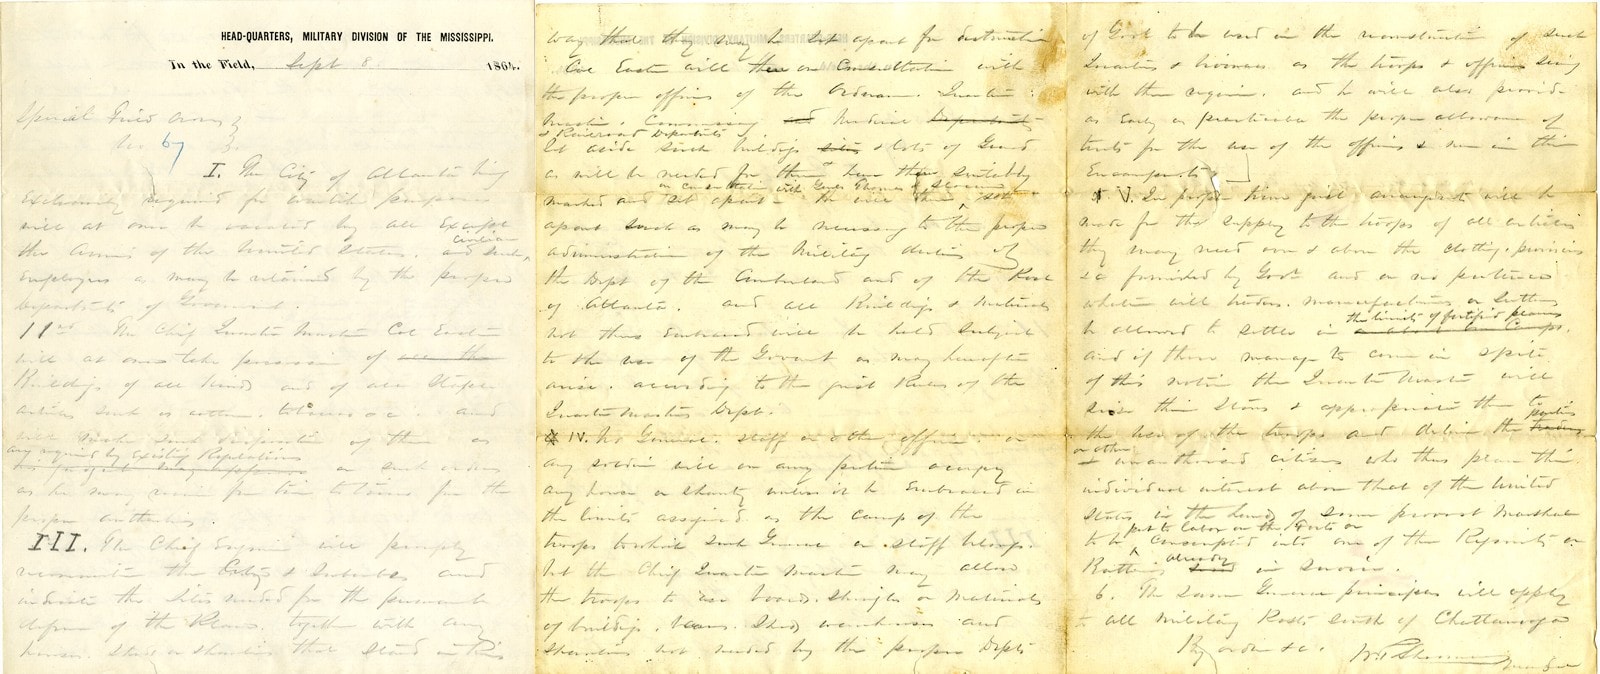 HEAD-QUARTERS, MILITARY DIVISION OF THE MISSISSIPPI.
In the Field, Sept 8 1864.
Special Field Orders
No 67
I. The City of Atlanta being
Exclusively required for warlike purposes
will at once be vacated by all Except
the Armies of the United States. and such civilian
employees as may be retained by the proper
Departments of Government.
The Chief Quarter Master Col Easton
will at once take possession of all the
Buildings of all kinds and of all staple
articles such as cotton, tobacco &c. and
will make such disposition of them as
are required by existing Regulations
or such orders
as he may receive from time to time from the
proper authorities.
III. The Chief Engineer will promptly
reconnoitre the City & suburbs and
indicate the sites needed for the permanent
defense of the Place, together with any
houses, sheds or shanties that stand in their
way that they may be set apart for destruction
Col Easton will then on Consultation with
the proper officers of the Ordnance, Quarter
Master, Commissary and Medical Departments
& Railroad Departments
set aside such buildings & lots of Ground
as will be needed for them & have them suitably
marked and set apart
on consultation with Genls Thomas & Slocum
he will then set
apart such as may be necessary to the proper
administration of the Military duties of
the Dept of the Cumberland and of the Post
of Atlanta. and all Buildings & materials
not thus Embraced will be held subject
to the use of the Government as may hereafter
arise. according to the just Rules of the
Quarter Masters Dept.
IV. No General, staff or other officer or
any soldier will on any pretense occupy
any house or shanty unless it be Embraced in
the limits assigned as the camp of the
troops to which such General or staff belongs.
but the Chief Quarter Master may allow
the troops to use boards, shingles or materials
of buildings, barns, sheds, warehouses and
shanties not needed by the proper Depts
of Govt to be used in the reconstruction of such
Quarters & bivouacs as the troops & officers serving
with them require. and he will also provide
as Early as practicable the proper allowance of
tents for the use of the officers & men in their
Encampments
V. In proper time just arrangements will be
made for the supply to the troops of all articles
they may need over & above the clothing, provisions
&c furnished by Govt and on no pretense
whatever will traders, manufacturers or Sutlers
be allowed to settle in the limits of fortified places
and if these manage to come in spite
of this notice the Quarter Master will
seize their stores & appropriate them to
the use of the troops and deliver the parties
or other unauthorised citizens who thus place their
individual interest above that of the United
States in the hands of some provost Marshal
to be put to labor on the Forts or
conscripted into one of the Regiments or
Batteries already in service.
6. The same General principles will apply
to all Military Posts south of Chattanooga
By order &c. W T Sherman